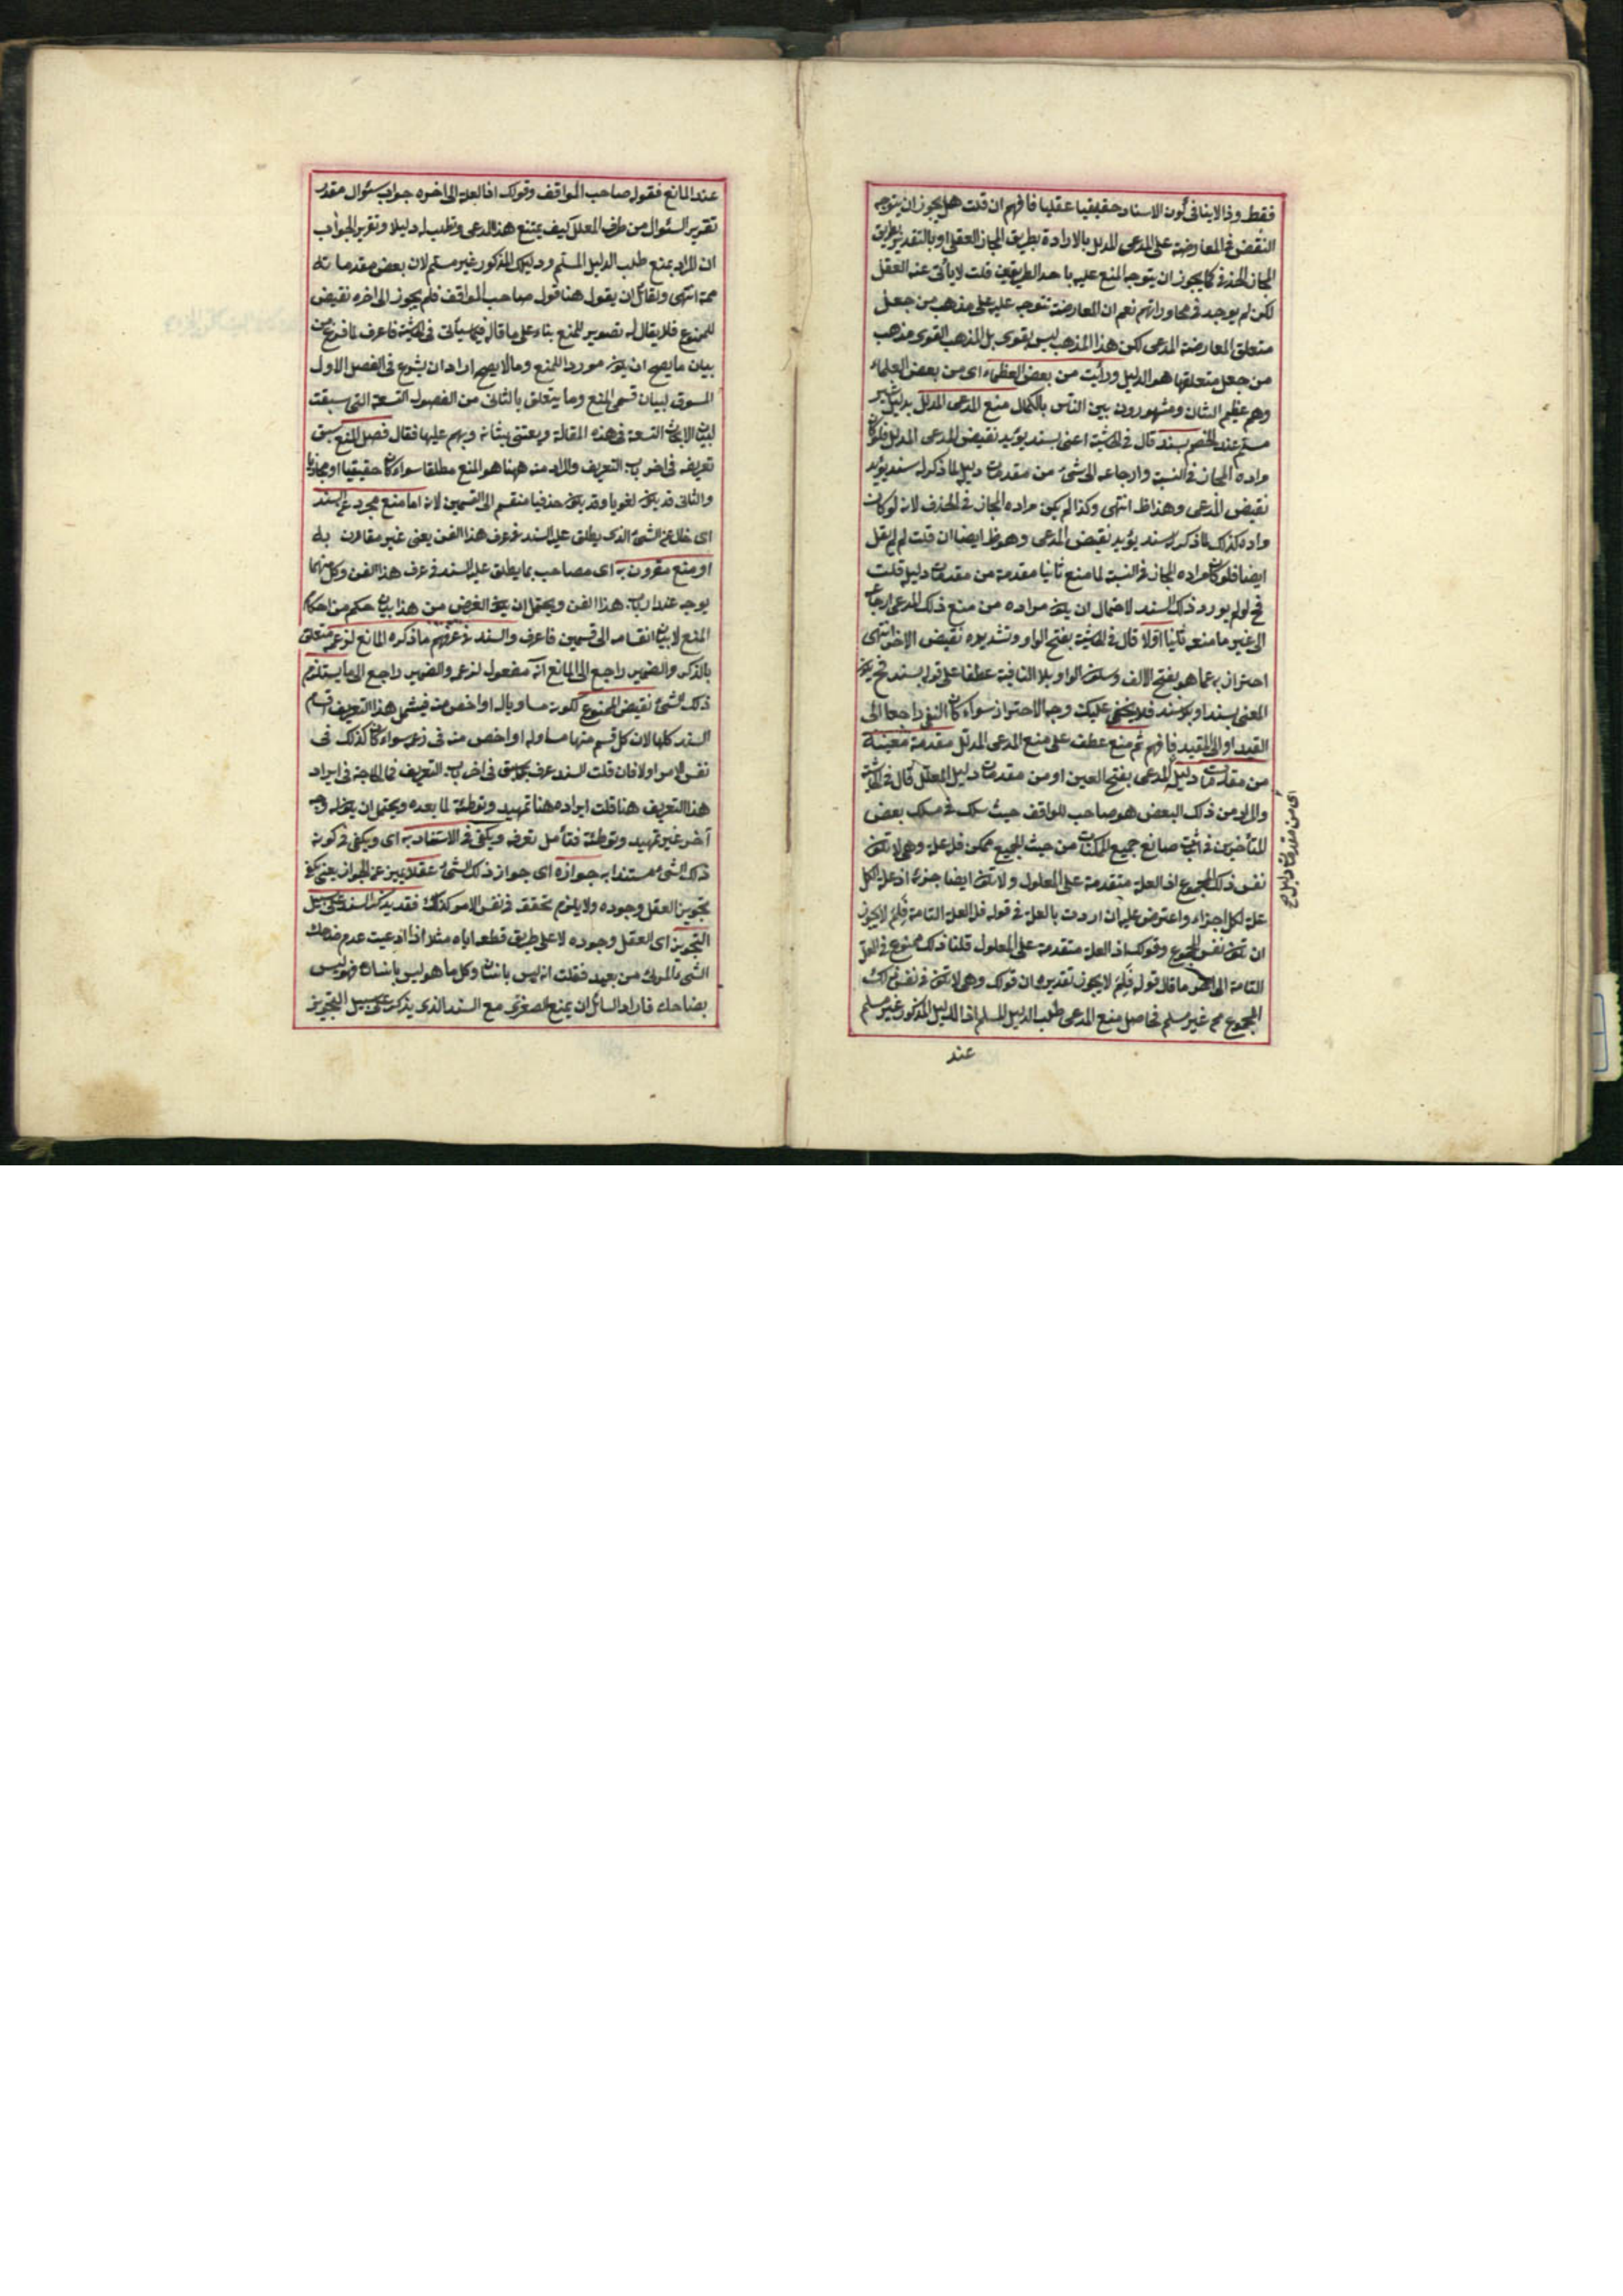 فقط وذا لا ينافى كون الاسناد حقيقيا عقليا فافهم ان قلت هل يجوز ان يتوجه
النقض والمعارضة على المدعى المدلل بالارادة بطريق المجاز العقلى او بالتقدير بطريق
المجاز الحذفى كما يجوز ان يتوجه المنع عليه باحد الطريقين قلت لا يأبى عنه العقل
لكن لم يوجد فى محاوراتهم نعم ان المعارضة تتوجه عليه على مذهب من جعل
متعلق المعارضة المدعى لكن هذا المذهب ليس بقوى بل المذهب القوى مذهب
من جعل متعلقها هو الدليل ورأيت من بعض العظماء اى من بعض العلماء
وهم عظيم الشان ومشهورون بين الناس بالكمال منع المدعى المدلل بدليل غير
مسلم عند الخصم بسند قال فى الحاشية اعنى بسند يؤيد نقيض المدعى المدلل فلو كان
مراده المجاز فى النسبة وارجاعه الى شئ من مقدمات دليل لما ذكر له سند يؤيد
نقيض المدعى وهذا ظ انتهى وكذا لم يكن مراده المجاز فى الحذف لانه لو كان
مراده كذلك لما ذكر له سند يؤيد نقيض المدعى وهو ظ ايضا ان قلت لم لم يقل
ايضا فلو كان مراده المجاز فى النسبة لما منع ثانيا مقدمة من مقدمات دليله قلت
فح لو لم يورد ذلك السند لاحتمال ان يكون مراده من منع ذلك المدعى ارجاعه
الى غير ما منعه ثانيا اولا قال فى الحاشية بفتح الواو وتشديده نقيض الاخر انتهى
احتراز به عما هو بفتح الالف وسكون الواو بلا النافية عطفا على قوله بسند فح يكون
المعنى بسند او بلا سند فلا يخفى عليك وجه الاحتراز سواء كان النفى راجعا الى
القيد او الى المقيد فافهم ثم منع عطف على منع المدعى المدلل مقدمة معينة
من مقدمات دليل المدعى بفتح العين او من مقدمات دليل المعلل قال فى الحاشية
والمراد من ذلك البعض هو صاحب المواقف حيث سلك فى مسلك بعض
المتأخرين فى اثبات صانع جميع الممكنات من حيث الجميع ممكن فله علة وهى لا تكون
نفس ذلك المجموع اذ العلة متقدمة على المعلول ولا تكون ايضا جزئه اذ علة الكل
علة لكل اجزاء واعترض عليه ان اردت بالعلة فى قوله فله العلة التامة فلم لا يجوز
ان تكون نفس المجموع وقولك اذ العلة متقدمة على المعلول قلنا ذلك ممنوع فى العلة
التامة الى اخر ما قال قوله فلم لا يجوز تقديره ان قولك وهى لا تكون نفس ذلك
المجموع مم غير مسلم فحاصل منع المدعى طلب الدليل المسلم اذ الدليل المذكور غير مسلم
عند
عند المانع فقول صاحب المواقف وقولك اذ العلة الى اخره جواب سئوال مقدر
تقرير السئوال من طرف المعلل كيف يمتنع هذا المدعى وتطلب له دليلا وتقرير الجواب
ان المراد بمنع طلب الدليل المسلم ودليلك المذكور غير مسلم لان بعض مقدماته
ممة انتهى ولقائل ان يقول هنا قول صاحب المواقف فلم يجوز الى اخره نقيض
للممنوع فلا يقال له تصوير للمنع بناء على ما قاله فيما سيأتى فى الحاشية فاعرف لما فرغ من
بيان ما يصح ان يكون موردا للمنع وما لا يصح اراد ان يشرع فى الفصل الاول
المسوق لبيان قسمى المنع وما يتعلق بالثانى من الفصول التسعة التى سبقت
لبيان الابحاث التسعة فى هذه المقالة ويعتنى بشانه ويهم عليها فقال فصل المنع سبق
تعريفه فى اخر باب التعريف والمراد منه ههنا هو المنع مطلقا سواء كان حقيقيا او مجازيا
والثانى قد يكون لغويا وقد يكون حذفيا منقسم الى القسمين لانه اما منع مجرد عن السند
اى خال عن الشئ الذى يطلق عليه السند فى عرف هذا الفن يعنى غير مقارن به
او منع مقرون به اى مصاحب بما يطلق عليه السند فى عرف هذا الفن وكل منهما
يوجد عند ارباب هذا الفن ويحتمل ان يكون الغرض من هذا بيان حكم من احكام
المنع لا بيان انقسامه الى قسمين فاعرف والسند فى عرفهم ما ذكره المانع لزعمه متعلق
بالذكر والضمير راجع الى المانع انه مفعول لزعم والضمير راجع الى ما يستلزم
ذلك الشئ نقيض الممنوع لكونه مساويا له او اخص منه فيشمل هذا التعريف اقسام
السند كلها لان كل قسم منها مساو له او اخص منه فى زعمه سواء كان كذلك فى
نفس الامر او لا فان قلت السند عرف بما سبق فى اخر باب التعريف فما الحاجة فى ايراد
هذا التعريف هنا قلت ايراده هنا تمهيد وتوطئة لما بعده ويحتمل ان يكون له وجه
آخر غير تمهيد وتوطئة فتأمل تعرف ويكفى فى الاستناد به اى ويكفى فى كونه
ذلك الشئ مستندا به جوازه اى جواز ذلك الشئ عقلا تمييز عن الجواز يعنى يكفى
تجويز العقل وجوده ولا يلزم تحققه فى نفس الامر كذلك فقد يذكر السند على سبيل
التجويز اى العقل وجوده لا على طريق قطعه اياه مثلا اذا ادعيت عدم ضاحك
الشئ المرئى من بعيد فقلت انه ليس بانسان وكل ما هو ليس بانسان فهو ليس
بضاحك فاراد السائل ان يمنع الصغرى مع السند الذى يذكر على سبيل التجويز